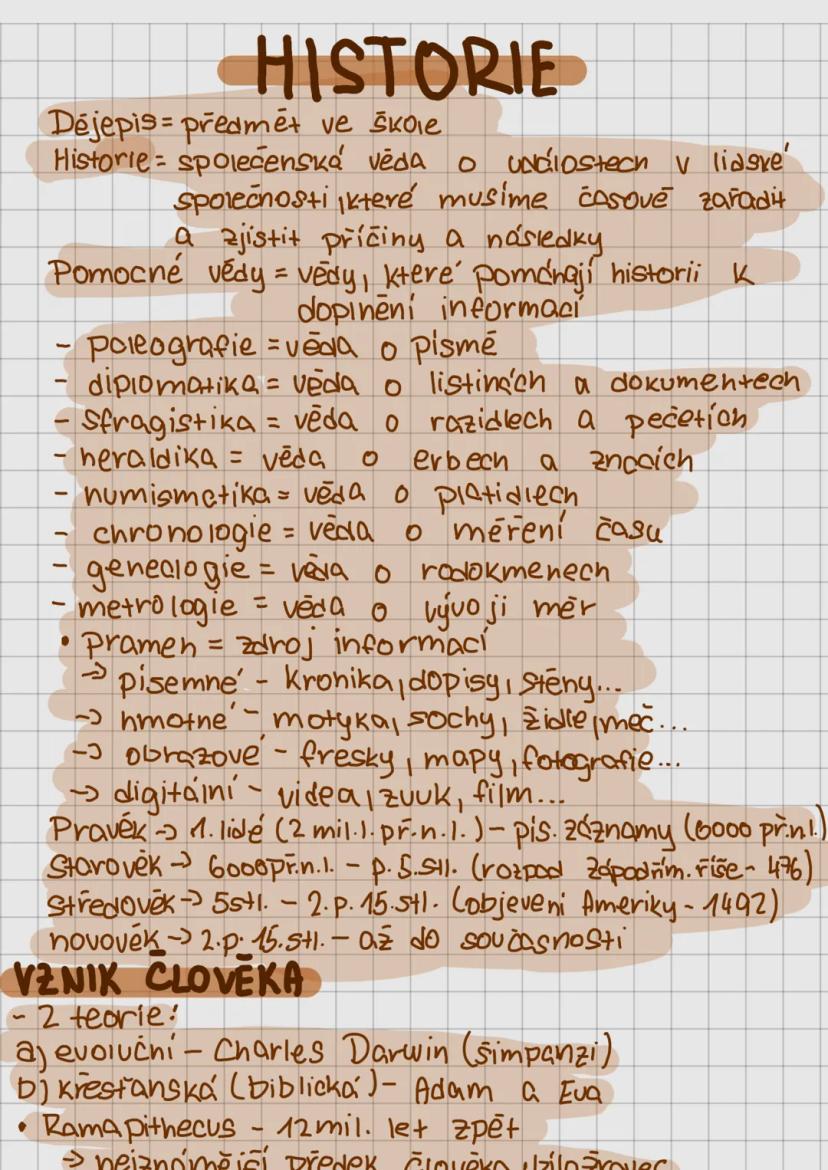 HISTORIE
Dějepis = předmět ve škole
Historie = společenská věda o událostech v lidské
společnosti, které musíme časově zařadit
a zjistit příčiny a následky
Pomocné vědy = vědy, které pomáhají historii k
doplnění informací
- paleografie = věda o písmě
- diplomatika = věda o listinách a dokumentech
- sfragistika = věda o razidlech a pečetích
- heraldika = věda o erbech a znacích
- numismatika = věda o platidlech
- chronologie = věda o měření času
- genealogie = věda o rodokmenech
- metrologie = věda o vývoji měr
• Pramen = zdroj informací
→ písemné - kronika, dopisy, stěny...
→ hmotné - motyka, sochy, židle, meč...
→ obrazové - fresky, mapy, fotografie...
→ digitální - videa, zvuk, film...
Pravěk → 1. lidé (2 mil. l. př. n. l.) - pís. záznamy (6000 př.n.l.)
Starověk → 6000 př.n.l. - p. 5. stl. (rozpad západořím. říše - 476)
středověk → 5 stl. - 2. p. 15. stl. (objevení Ameriky - 1492)
novověk → 2. p. 15. stl. - až do současnosti
VZNIK ČLOVĚKA
- 2 teorie:
a) evoluční - Charles Darwin (šimpanzi)
b) křesťanská (biblická) - Adam a Eva
• Ramapithecus - 12 mil. let zpět
→ nejznámější předek člověka